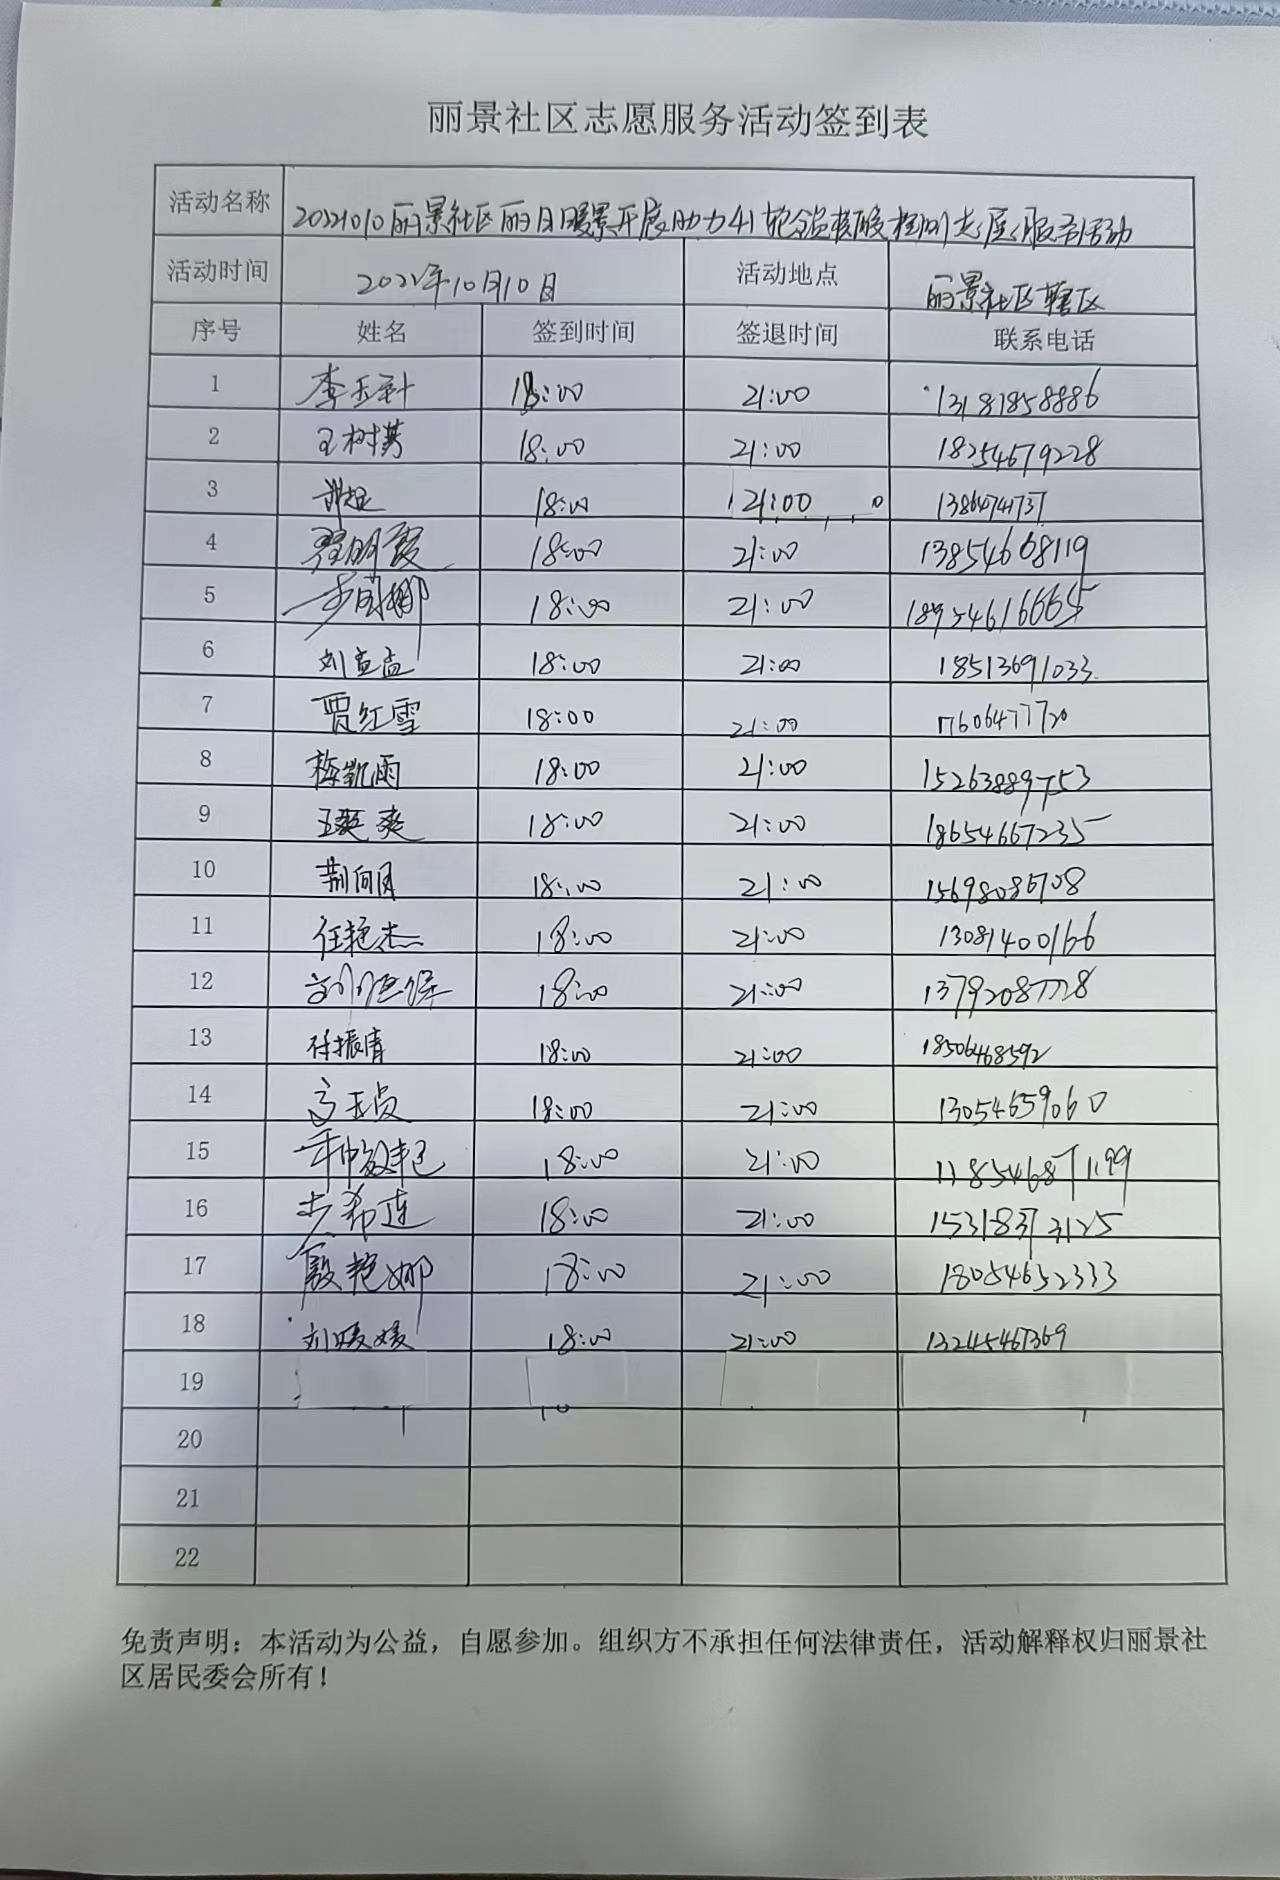 丽景社区志愿服务活动签到表
活动名称 20221010丽景社区丽日暖景开展助力41轮全员核酸检测志愿服务活动
活动时间 2022年10月10日 活动地点 丽景社区辖区
序号 姓名 签到时间 签退时间 联系电话
1 18:00 21:00 13181858886
2 王树 18:00 21:00 18254679228
3 18:00 21:00
4 程明霞 18:00 21:00 13854668119
5 18:00 21:00 18954616665
6 刘宣孟 18:00 21:00 18513691033
7 贾红雪 18:00 21:00 17606477720
8 梅凯雨 18:00 21:00 15263889753
9 王爽爽 18:00 21:00 18654667235
10 荆丽月 18:00 21:00 15698086708
11 任艳杰 18:00 21:00 13081400166
12 18:00 21:00 13792087728
13 付振清 18:00 21:00 18506468592
14 高玉贞 18:00 21:00 13054659060
15 18:00 21:00
16 步希莲 18:00 21:00 15318373125
17 殷艳娜 18:00 21:00 18054652333
18 刘媛媛 18:00 21:00 13245467369
19
20
21
22
免责声明：本活动为公益，自愿参加。组织方不承担任何法律责任，活动解释权归丽景社
区居民委会所有！